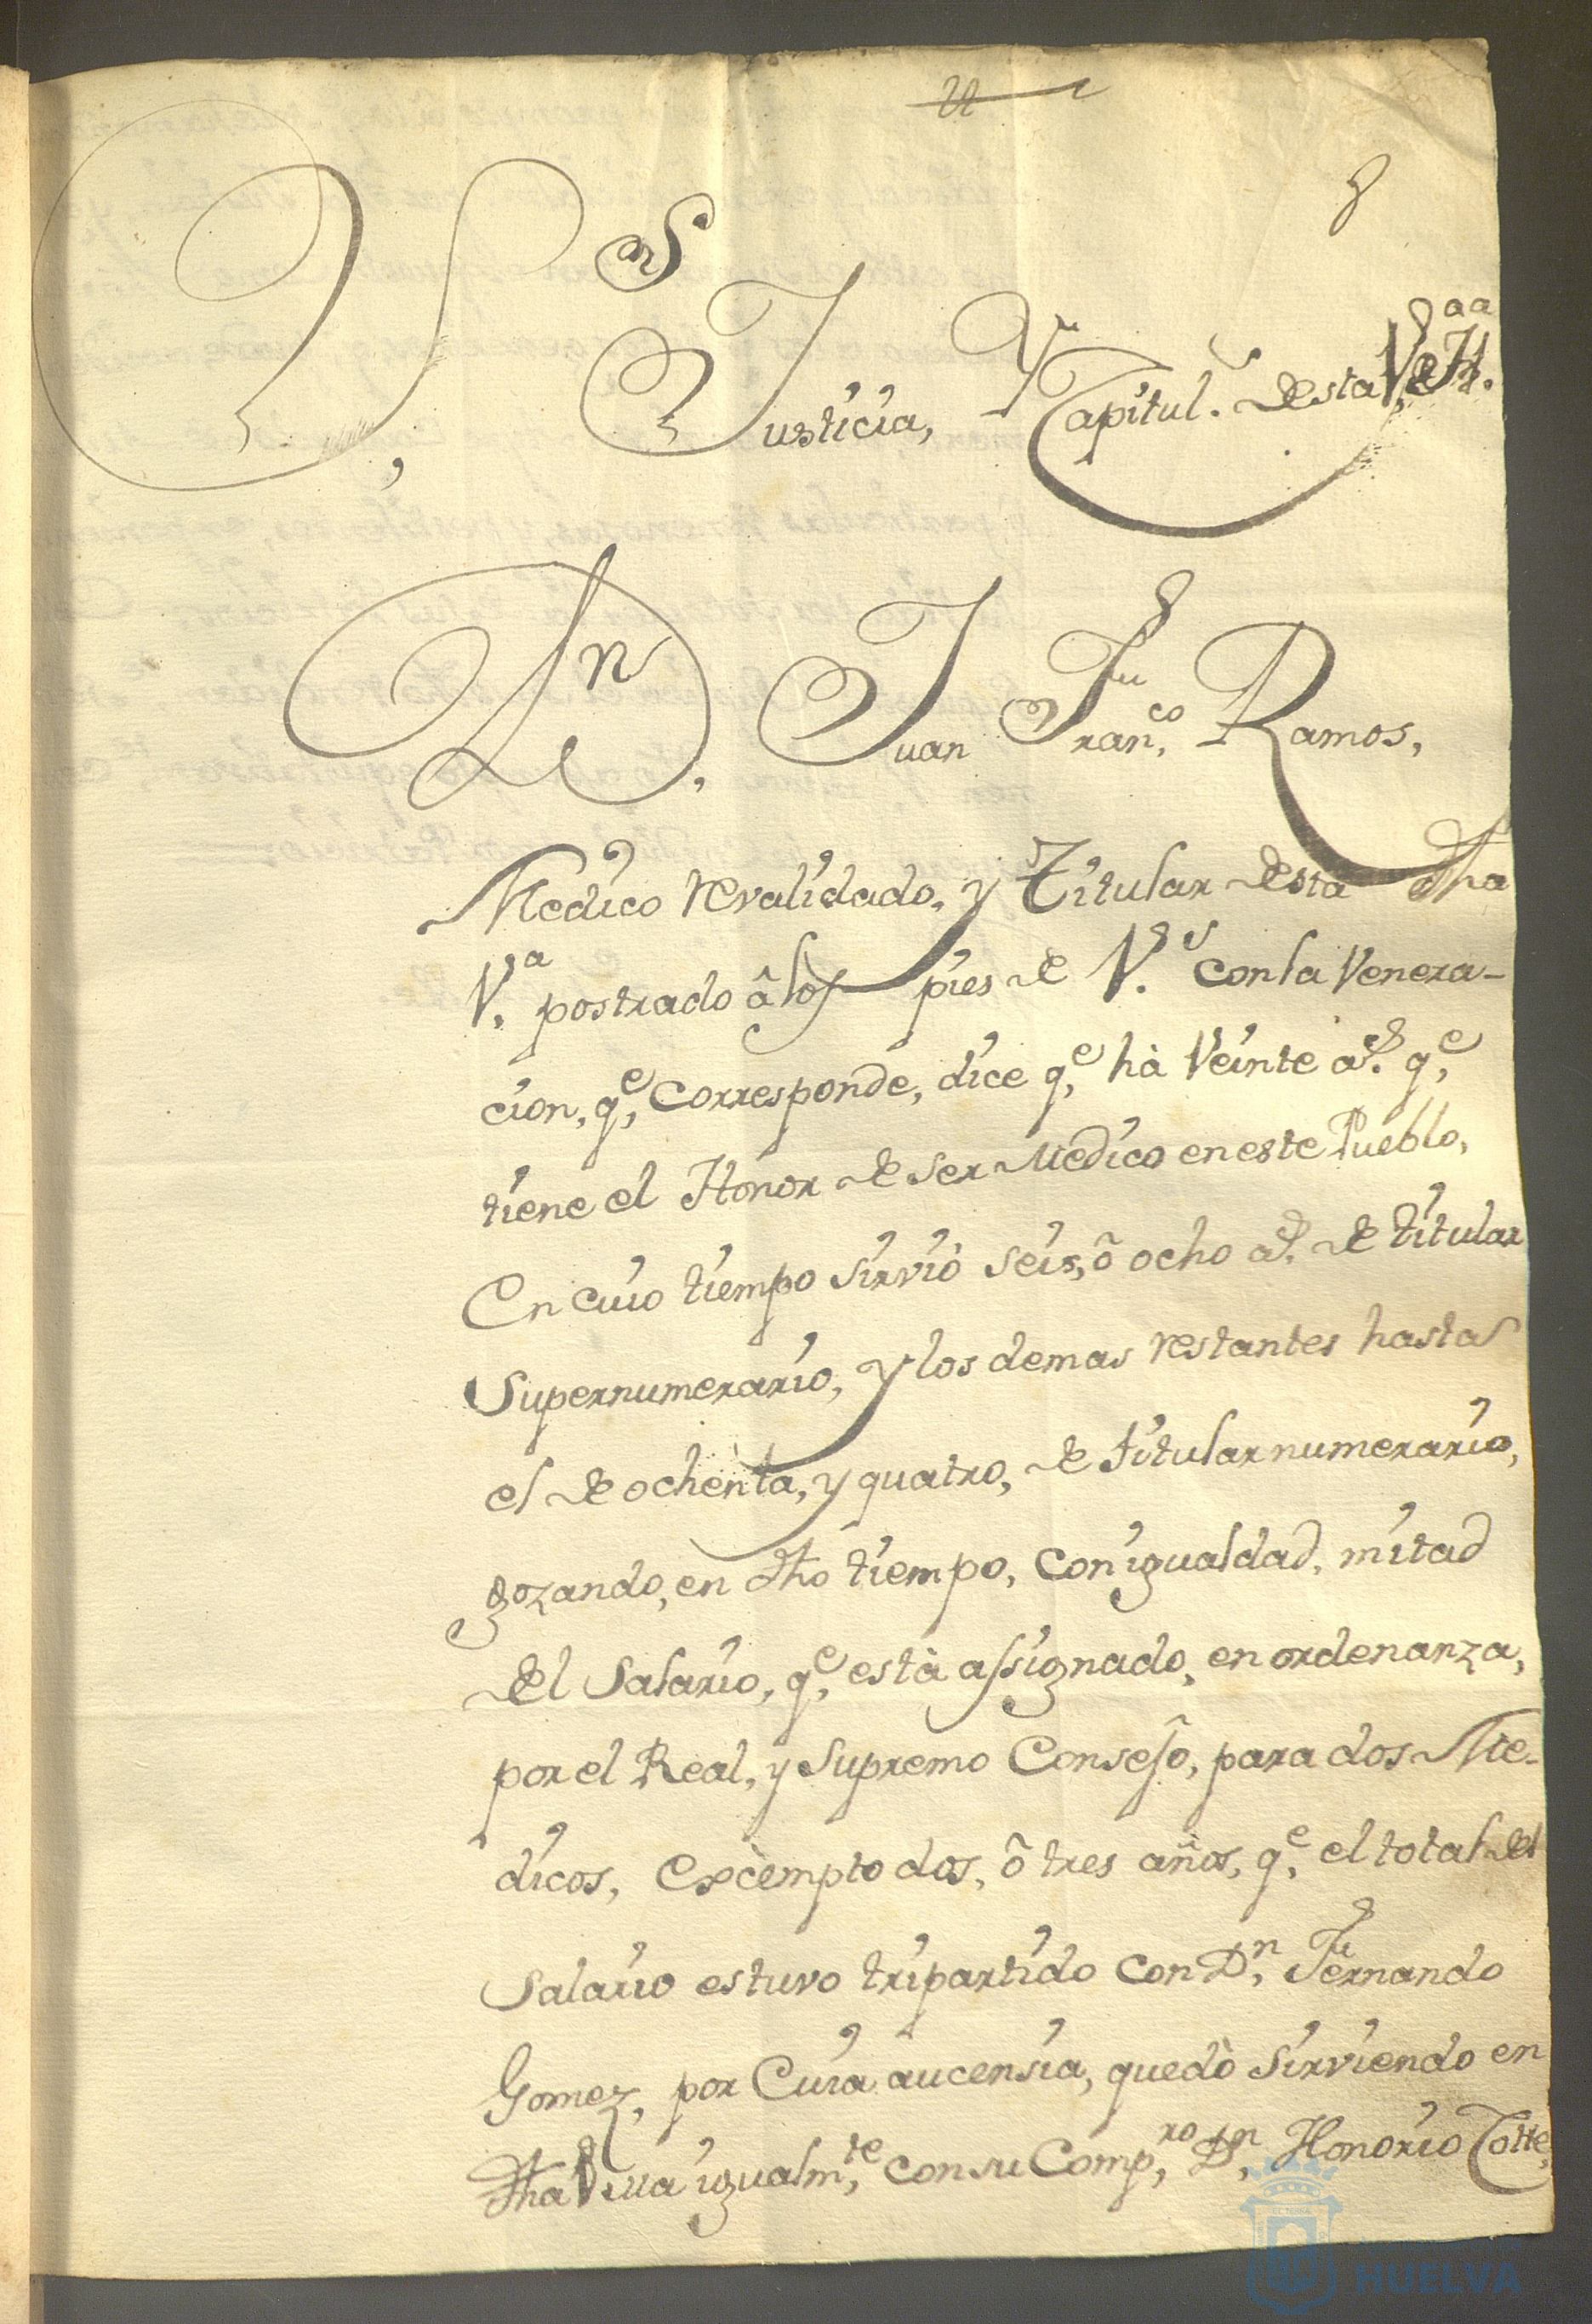 22
8
V, S.res
Justicia, y Capitul.s desta V.a de H.a
Dn, Juan Fran.co Ramos,
Medico revalidado, y Titular desta dha
V.a postrado â los pies de V.s con la Venera-
cion, q.e corresponde, dice q.e hà Veinte a.s q.e
tiene el Honor de ser Medico en este Pueblo,
En cuio tiempo sirviò seis, ô ocho a.s de titular
Supernumerario, y los demas restantes hasta
el de ochenta, y quatro, de titular numerario,
gozando, en dho tiempo, con igualdad, mitad
del Salario, q.e està assignado, en ordenanza,
por el Real, y Supremo Consejo, para dos Me-
dicos, excèmpto dos, ô tres años, q.e el total del
Salario estuvo tripartido con D.n Fernando
Gomez, por Cuia aucensia, quedò sirviendo en
dha Villa igualm.te con su Comp.ro D.n Honorio Totte,
HUELVA